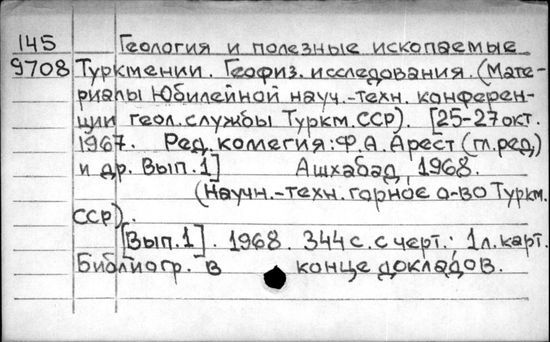 145 Геология и полезные ископаемые
9708 Туркмении. Геофиз. исследования. (Мате-
риалы Юбилейной науч.-техн. конферен-
ции геол. службы Туркм. ССР). [25-27 окт.
1967. Ред. комегия: Ф.А. Арест (гл. ред.)
и др. Вып. 1] Ашхабад, 1968.
(Научн.-техн. горное о-во Туркм.
ССР).
[Вып. 1]. 1968. 344 с. с черт.; 1 л. карт.
Библиогр. в конце докладов.